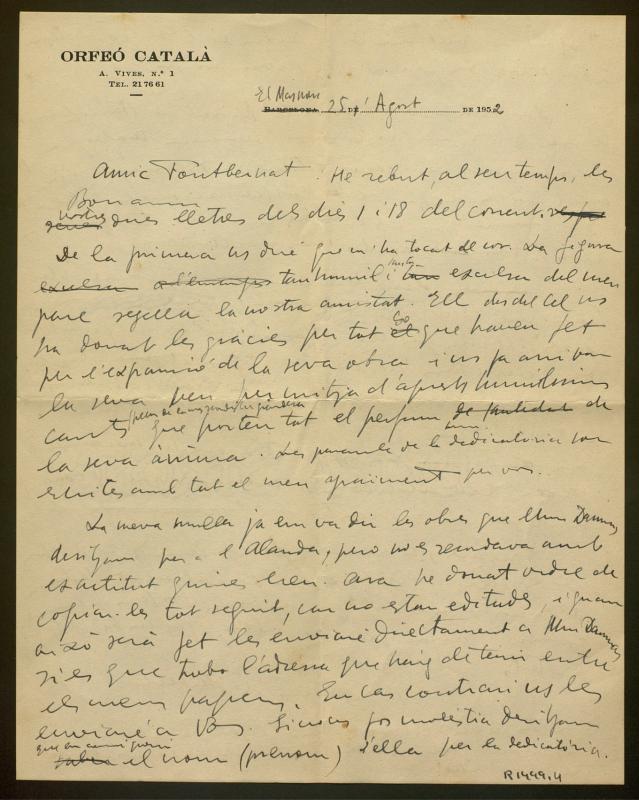 ORFEÓ CATALÀ
A. VIVES, N.º 1
TEL. 21 76 61
El Masnou
BARCELONA 25 D' Agost DE 1952
Amic Fontbernat. He rebut, al seu temps, les
Bonamm
vostres dues lletres dels dies 1 i 18 del corrent.
De la primera us diré que m'ha tocat el cor. La figura
excelsa tan humil i tan excelsa del meu
pare segella la nostra amistat. Ell des del cel us
ha donat les gràcies per tot el que haveu fet
per l'expansió de la seva obra i us fa arribar
la seva veu per mitjà d'aquests humilíssims
cants que porten tot el perfum de santedat de
la seva ànima. Les paraules de la dedicatòria son
escrites amb tot el meu agraiment per vos.
La meva muller ja em va dir les obres que
desitjava per a l'Alanda, pero no es recordava amb
exactitut quines eren. Ara he donat ordre de
copiar-les tot seguit, car no estan editades, i quan
aixó serà fet les enviaré directament a
si es que trobo l'adressa que haig de tenir entre
els meus papers. En cas contrari us les
enviaré a Vos. Si no us fos molestia desitjaria
que em
sabre el nom (prenom) d'ella per la dedicatòria.
R 1449.4